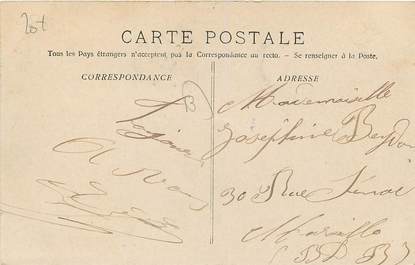 CARTE POSTALE
Tous les Pays étrangers n'acceptent pas la Correspondance au recto. — Se renseigner à la Poste.
CORRESPONDANCE
ADRESSE
Mademoiselle
Joséphine
30 Rue
Marseille
(B D R)
Toujours
A Vous